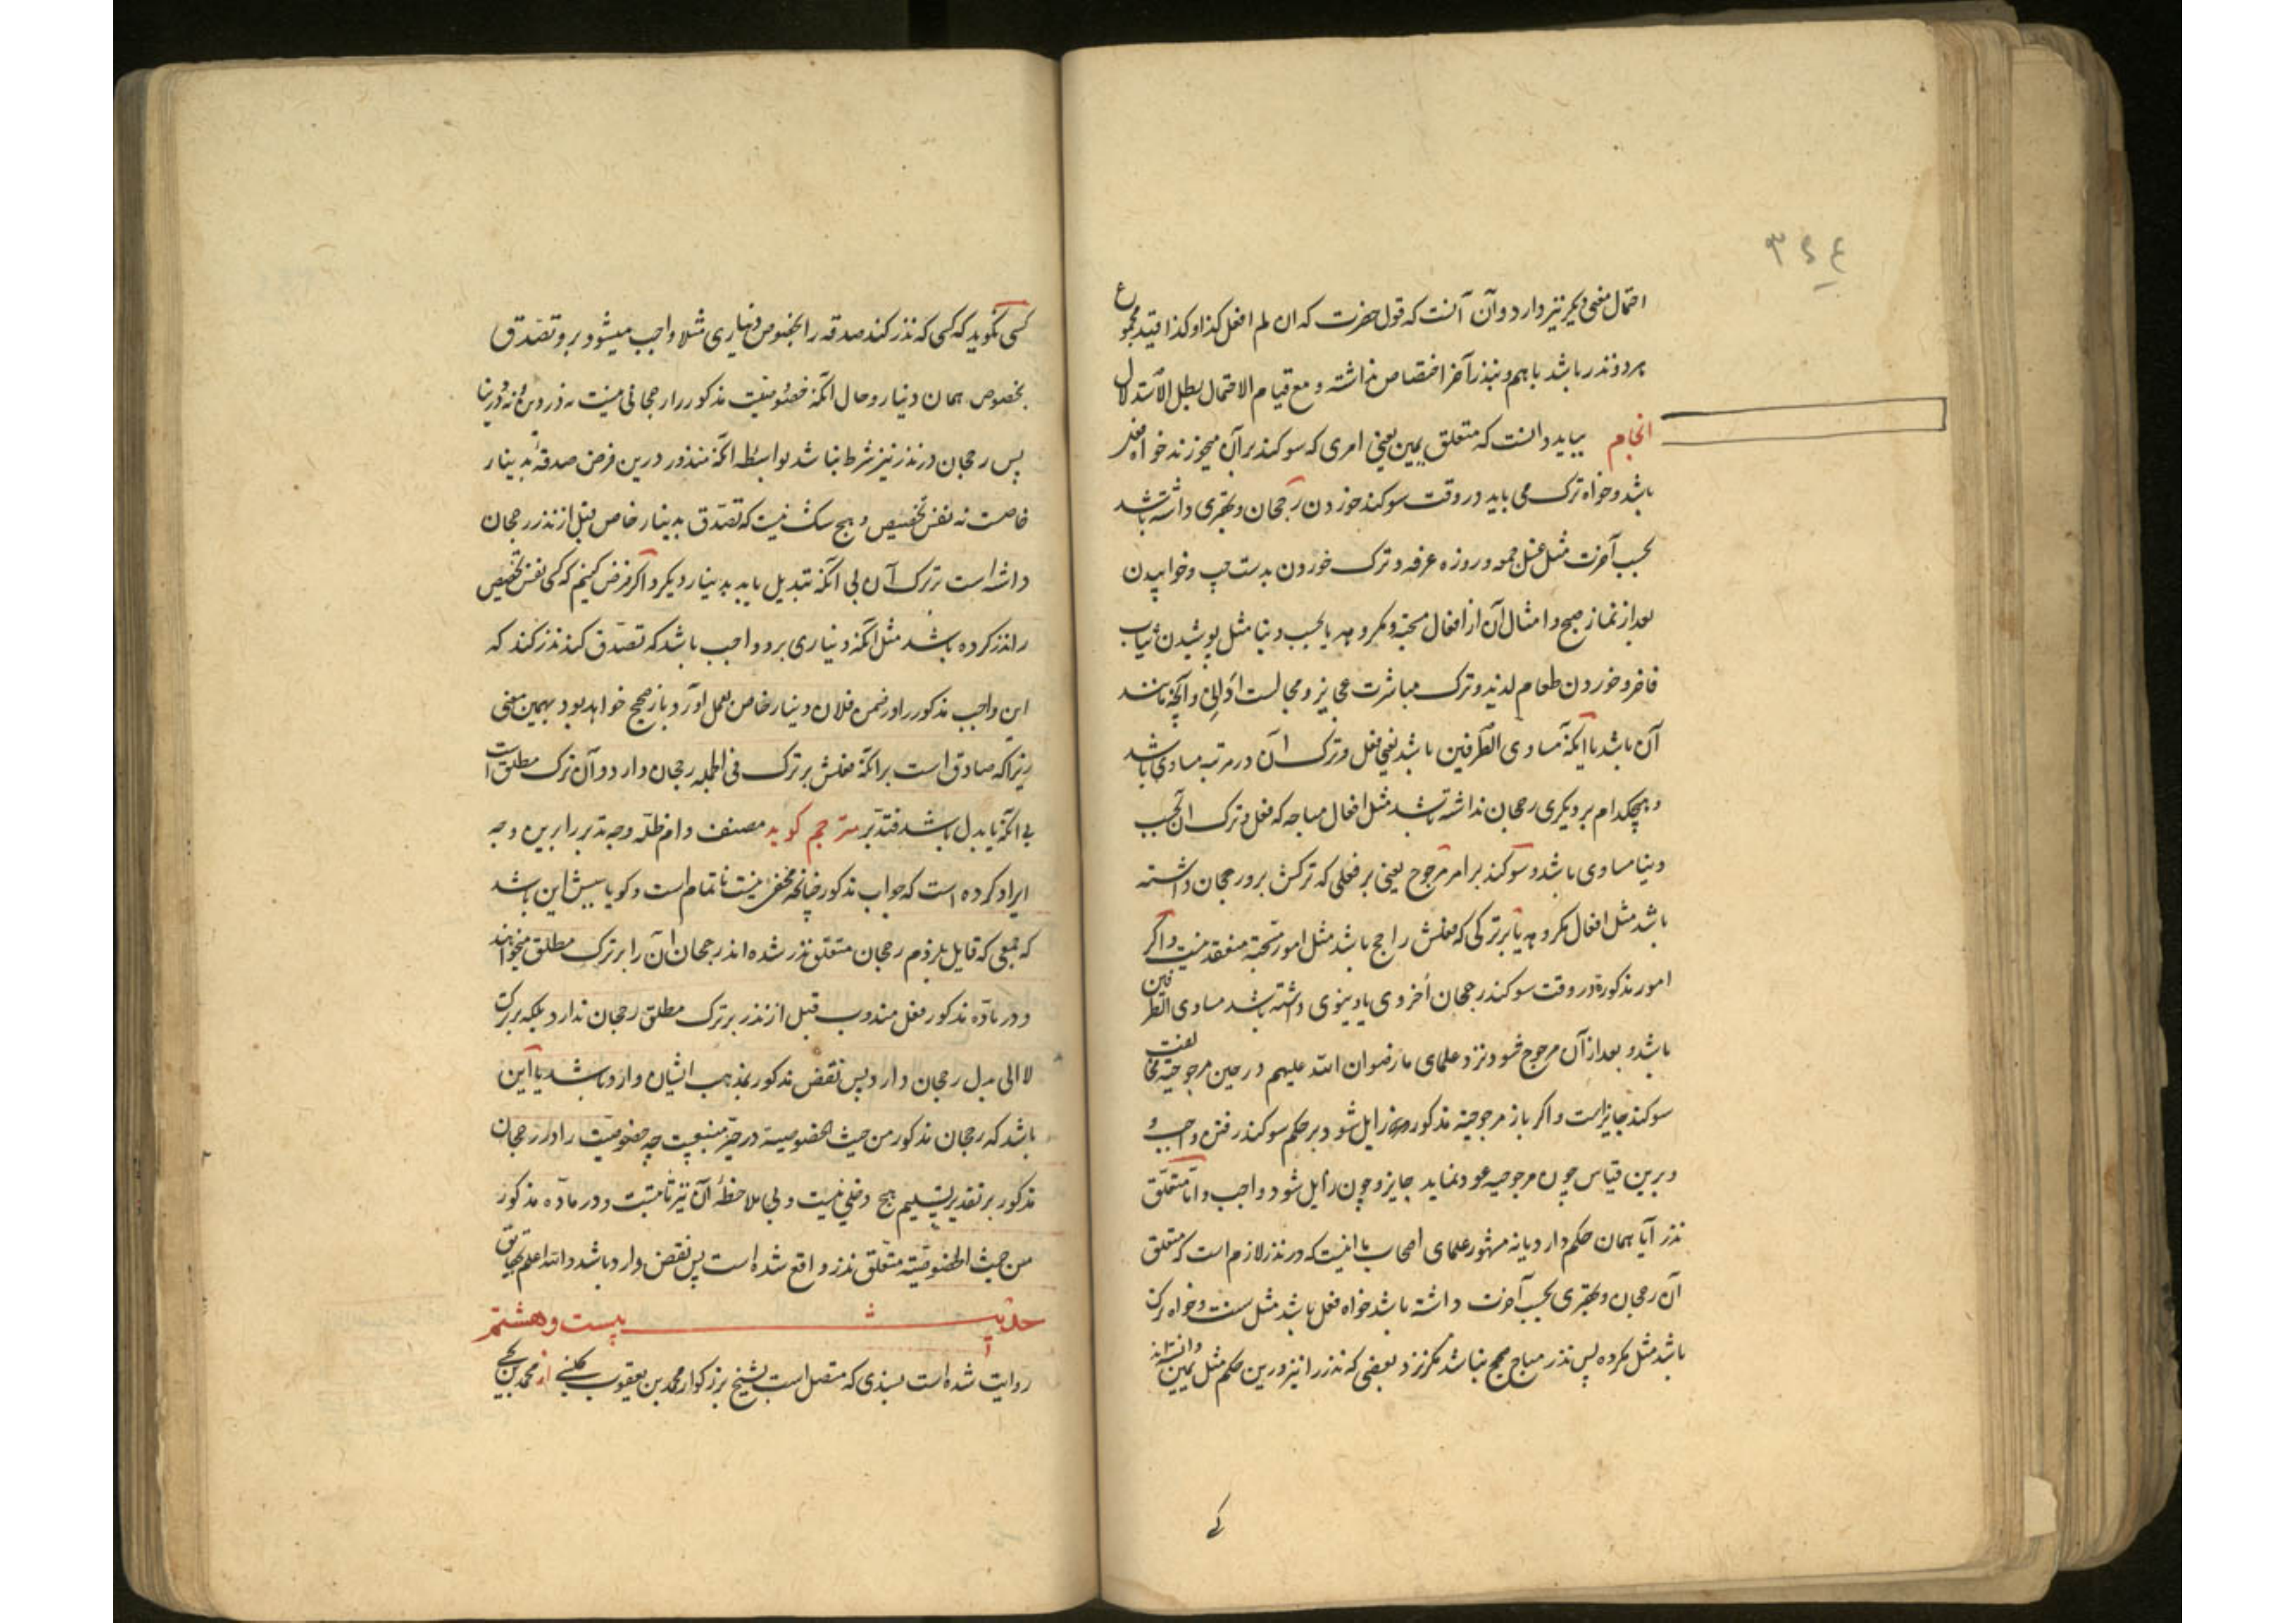 ۳۶۴
احتمال معنی دیگر نیز دارد و آن آنست که قول حضرت که ان لم افعل کذا و کذا قید مجموع
هر دو نذر باشد باهم و بنذر آخر اختصاص نداشته و مع قیام الاحتمال یبطل الاستدلال
انجام بباید دانست که متعلق یمین یعنی امری که سوکند بر آن میخورند خواه فعل
باشد و خواه ترک می باید در وقت سوکند خوردن رجحان و بهتری داشته باشد
بحسب آخرت مثل غسل جمعه و روزه عرفه و ترک خوردن بدست چپ و خوابیدن
بعد از نماز صبح و امثال آن از افعال مستحبه و مکروهه یا بحسب دنیا مثل پوشیدن ثیاب
فاخر و خوردن طعام لذیذ و ترک مباشرت عجایز و مجالست و آنچه مانند
آن باشد یا آنکه مساوی الطرفین باشد یعنی فعل و ترک آن در مرتبه مساوی باشد
و هیچکدام بر دیکری رجحان نداشته باشد مثل افعال مباحه که فعل و ترک آن بحسب
دنیا مساوی باشد و سوکند بر امر مرجوح یعنی بر فعلی که ترکش برو رجحان داشته
باشد مثل افعال مکروهه یا بر ترکی که فعلش راجح باشد مثل امور مستحبه منعقد نیست و اکر
امور مذکوره در وقت سوکند رجحان اخروی یا دنیوی داشته باشد مساوی الطرفین
باشد و بعد از آن مرجوح شود نزد علمای ما رضوان الله علیهم در حین مرجوحیة مخالفت
سوکند جایز است و اکر باز مرجوحیة مذکوره زایل شود بر حکم سوکند رفتن واجب و
و برین قیاس چون مرجوحیه عود نماید جایز و چون زایل شود واجب و اما متعلق
نذر آیا همان حکم دارد یا نه مشهور علمای اصحاب ما اینست که در نذر لازم است که متعلق
آن رجحان و بهتری بحسب آخرت داشته باشد خواه فعل باشد مثل سنت و خواه ترک
باشد مثل مکروه پس نذر مباح صحیح نباشد مکر نزد بعضی که نذر را نیز درین حکم مثل یمین دانسته‌اند
کسی نکوید که کسی که نذر کند صدقه را بخصوص دیناری مثلا واجب میشود برو تصدق
بخصوص همان دینار و حال آنکه خصوصیت مذکور را رجحانی نیست نه در دین و نه در دنیا
پس رجحان در نذر نیز شرط نباشد بواسطه آنکه منذور درین فرض صدقه بدینار
خاصست نه نفس تخصیص و هیچ شک نیست که تصدق بدینار خاص قبل از نذر رجحان
داشته است بر ترک آن بی آنکه تبدیل یابد بدینار دیکر و اکر فرض کنیم که کسی نفس تخصیص
را نذر کرده باشد مثل آنکه دیناری برو واجب باشد که تصدق کند نذر کند که
این واجب مذکور را در ضمن فلان دینار خاص بعمل آورد باز صحیح خواهد بود بهمین معنی
زیرا که صادق است بر آنکه فعلش بر ترک فی الجمله رجحان دارد و آن ترک مطلق است
بی آنکه با بدل باشد فتدبر مترجم کوید مصنف دام ظله وجه تدبر را برین وجه
ایراد کرده است که جواب مذکور چنانچه مخفی نیست ناتمام است و کویا سببش این باشد
که جمعی که قایل بلزوم رجحان متعلق نذر شده‌اند رجحان آن را بر ترک مطلق میخواهند
و در ماده مذکور فعل مندوب قبل از نذر بر ترک مطلق رجحان ندارد بلکه بر ترک
لا الی بدل رجحان دارد پس نقض مذکور بمذهب ایشان وارد باشد یا این
باشد که رجحان مذکور من حیث الخصوصیة در حیز منعیست چه خصوصیت را در رجحان
مذکور بر تقدیر تسلیم هیچ دخلی نیست و بی ملاحظهٔ آن نیز ثابتست و در ماده مذکور
من حیث الخصوصیة متعلق نذر واقع شده است پس نقض وارد باشد و الله اعلم
حدیث بیست و هشتم
روایت شده است بسندی که متصل است بشیخ بزرکوار محمد بن یعقوب کلینی از محمد بن یحیی